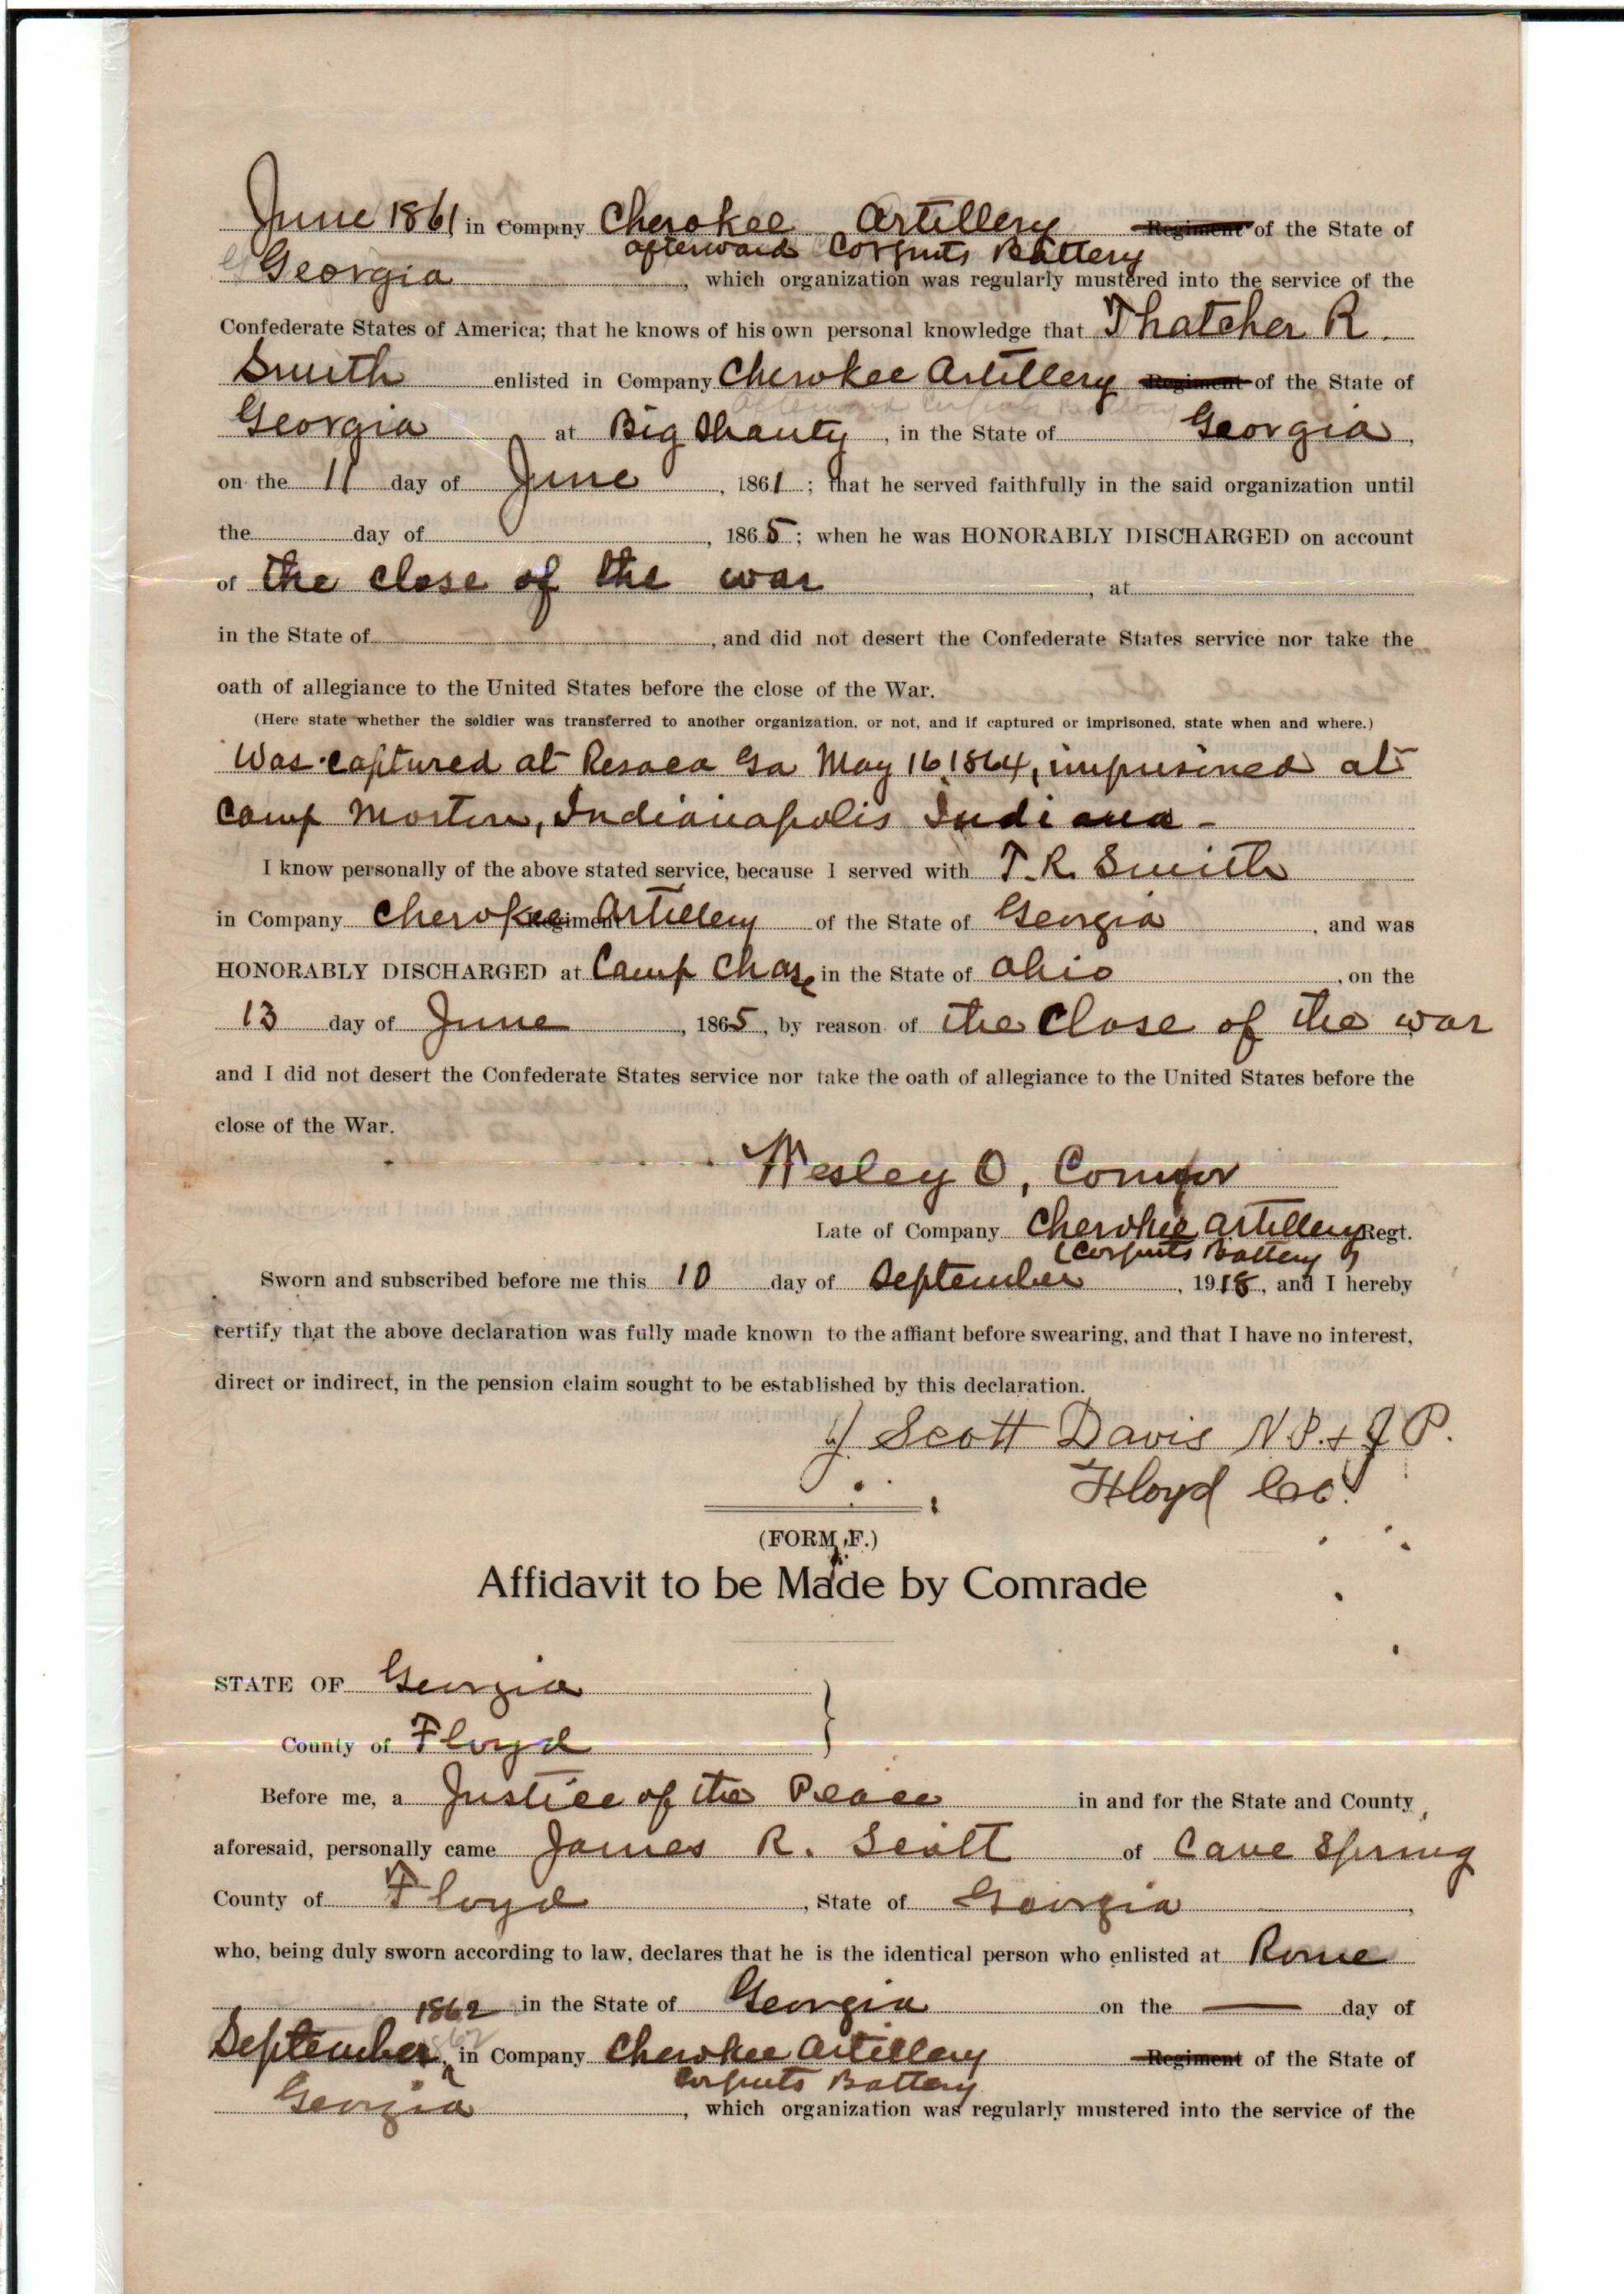 June 1861 in Company Cherokee Artillery Regiment of the State of
afterward Corputs Battery
Georgia, which organization was regularly mustered into the service of the
Confederate States of America; that he knows of his own personal knowledge that Thatcher R.
Smith enlisted in Company Cherokee Artillery Regiment of the State of
Afterward Corputs Battery
Georgia at Big Shanty, in the State of Georgia,
on the 11 day of June, 1861; that he served faithfully in the said organization until
the day of , 1865; when he was HONORABLY DISCHARGED on account
of the close of the war, at
in the State of , and did not desert the Confederate States service nor take the
oath of allegiance to the United States before the close of the War.
(Here state whether the soldier was transferred to another organization, or not, and if captured or imprisoned, state when and where.)
Was captured at Resaca Ga May 16 1864, imprisoned at
Camp Morton, Indianapolis Indiana -
I know personally of the above stated service, because I served with T. R. Smith
in Company Cherokee Regiment Artillery of the State of Georgia, and was
HONORABLY DISCHARGED at Camp Chase in the State of Ohio, on the
13 day of June, 1865, by reason of the Close of the war
and I did not desert the Confederate States service nor take the oath of allegiance to the United States before the
close of the War.
Wesley O, Connor
Late of Company Cherokee Artillery Regt.
(Corputs Battery)
Sworn and subscribed before me this 10 day of September, 1918, and I hereby
certify that the above declaration was fully made known to the affiant before swearing, and that I have no interest,
direct or indirect, in the pension claim sought to be established by this declaration.
Scott Davis N.P. & J P.
Floyd Co.
(FORM F.)
Affidavit to be Made by Comrade
STATE OF Georgia
County of Floyd
Before me, a Justice of the Peace in and for the State and County,
aforesaid, personally came James R. Scott of Cave Spring
County of Floyd, State of Georgia,
who, being duly sworn according to law, declares that he is the identical person who enlisted at Rome
1862 in the State of Georgia on the — day of
September, in Company Cherokee Artillery Regiment of the State of
Corputs Battery
Georgia, which organization was regularly mustered into the service of the